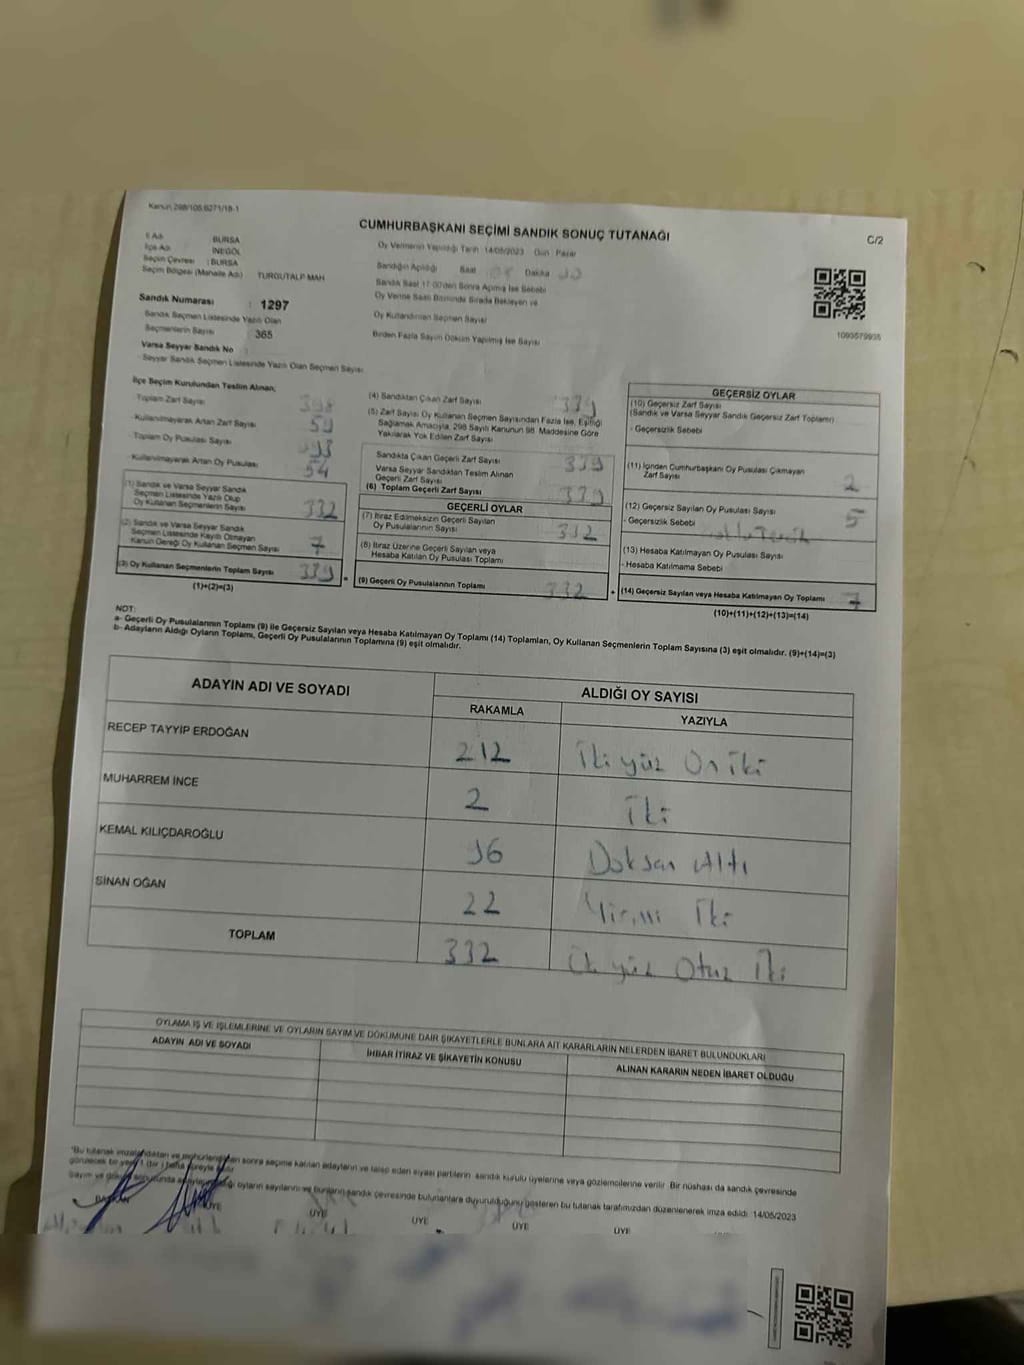 Kanun 298/105 6271/18-1
CUMHURBAŞKANI SEÇİMİ SANDIK SONUÇ TUTANAĞI
C/2
İl Adı BURSA
İlçe Adı INEGÖL
Seçim Çevresi : BURSA
Seçim Bölgesi (Mahalle Adı) TURGUTALP MAH
Oy Vermenin Yapıldığı Tarih 14/05/2023 Gün : Pazar
Sandığın Açıldığı Saat Dakika
Sandık Saat 17:00'den Sonra Açılmış İse Sebebi
Oy Verme Saati Bitiminde Sırada Bekleyen ve
Oy Kullandırılan Seçmen Sayısı
Birden Fazla Sayım Döküm Yapılmış İse Sayısı
1093579935
Sandık Numarası : 1297
Sandık Seçmen Listesinde Yazılı Olan
Seçmenlerin Sayısı 365
Varsa Seyyar Sandık No
Seyyar Sandık Seçmen Listesinde Yazılı Olan Seçmen Sayısı
İlçe Seçim Kurulundan Teslim Alınan;
- Toplam Zarf Sayısı 398
- Kullanılmayarak Artan Zarf Sayısı 59
- Toplam Oy Pusulası Sayısı
- Kullanılmayarak Artan Oy Pusulası 54
(1) Sandık ve Varsa Seyyar Sandık
Seçmen Listesinde Yazılı Olup
Oy Kullanan Seçmenlerin Sayısı 332
(2) Sandık ve Varsa Seyyar Sandık
Seçmen Listesinde Kayıtlı Olmayan
Kanun Gereği Oy Kullanan Seçmen Sayısı 7
(3) Oy Kullanan Seçmenlerin Toplam Sayısı 339
(1)+(2)=(3)
(4) Sandıktan Çıkan Zarf Sayısı 339
(5) Zarf Sayısı Oy Kullanan Seçmen Sayısından Fazla İse, Eşitliği
Sağlamak Amacıyla, 298 Sayılı Kanunun 98. Maddesine Göre
Yakılarak Yok Edilen Zarf Sayısı
Sandıkta Çıkan Geçerli Zarf Sayısı 339
Varsa Seyyar Sandıktan Teslim Alınan
Geçerli Zarf Sayısı
(6) Toplam Geçerli Zarf Sayısı 339
GEÇERLİ OYLAR
(7) İtiraz Edilmeksizin Geçerli Sayılan
Oy Pusulalarının Sayısı 332
(8) İtiraz Üzerine Geçerli Sayılan veya
Hesaba Katılan Oy Pusulası Toplamı
(9) Geçerli Oy Pusulalarının Toplamı 332
GEÇERSİZ OYLAR
(10) Geçersiz Zarf Sayısı
(Sandık ve Varsa Seyyar Sandık Geçersiz Zarf Toplamı)
- Geçersizlik Sebebi
(11) İçinden Cumhurbaşkanı Oy Pusulası Çıkmayan
Zarf Sayısı 2
(12) Geçersiz Sayılan Oy Pusulası Sayısı 5
- Geçersizlik Sebebi
(13) Hesaba Katılmayan Oy Pusulası Sayısı
- Hesaba Katılmama Sebebi
(14) Geçersiz Sayılan veya Hesaba Katılmayan Oy Toplamı 7
(10)+(11)+(12)+(13)=(14)
NOT:
a- Geçerli Oy Pusulalarının Toplamı (9) ile Geçersiz Sayılan veya Hesaba Katılmayan Oy Toplamı (14) Toplamları, Oy Kullanan Seçmenlerin Toplam Sayısına (3) eşit olmalıdır. (9)+(14)=(3)
b- Adayların Aldığı Oyların Toplamı, Geçerli Oy Pusulalarının Toplamına (9) eşit olmalıdır.
ADAYIN ADI VE SOYADI
ALDIĞI OY SAYISI
RAKAMLA YAZIYLA
RECEP TAYYİP ERDOĞAN 212 İki yüz On iki
MUHARREM İNCE 2 İki
KEMAL KILIÇDAROĞLU 96 Doksan Altı
SİNAN OĞAN 22 Yirmi İki
TOPLAM 332 Üç yüz Otuz İki
OYLAMA İŞ VE İŞLEMLERİNE VE OYLARIN SAYIM VE DÖKÜMÜNE DAİR ŞİKAYETLERLE BUNLARA AİT KARARLARIN NELERDEN İBARET BULUNDUKLARI
ADAYIN ADI VE SOYADI İHBAR İTİRAZ VE ŞİKAYETİN KONUSU ALINAN KARARIN NEDEN İBARET OLDUĞU
"Bu tutanak imzalandıktan ve mühürlendikten sonra seçime katılan adayların ve talep eden siyasi partilerin sandık kurulu üyelerine veya gözlemcilerine verilir. Bir nüshası da sandık çevresinde
görülecek bir yere 1 (bir) hafta süreyle asılır
Sayım ve döküm sonunda adayların aldığı oyların sayılarını ve bunların sandık çevresinde bulunanlara duyurulduğunu gösteren bu tutanak tarafımızdan düzenlenerek imza edildi. 14/05/2023
BAŞKAN ÜYE ÜYE ÜYE ÜYE ÜYE